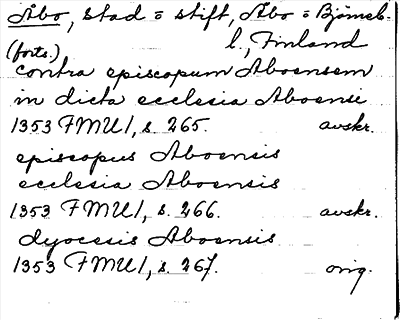 Åbo, stad o stift, Åbo o Björneb.
(forts.) l., Finland
contra episcopum Aboensem
in dicta ecclesia Aboensi
1353 FMU 1, s. 265. avskr.
episcopus Aboensis
ecclesia Aboensis
1353 FMU 1, s. 266. avskr.
dyocesis Aboensis
1353 FMU 1, s. 267. orig.